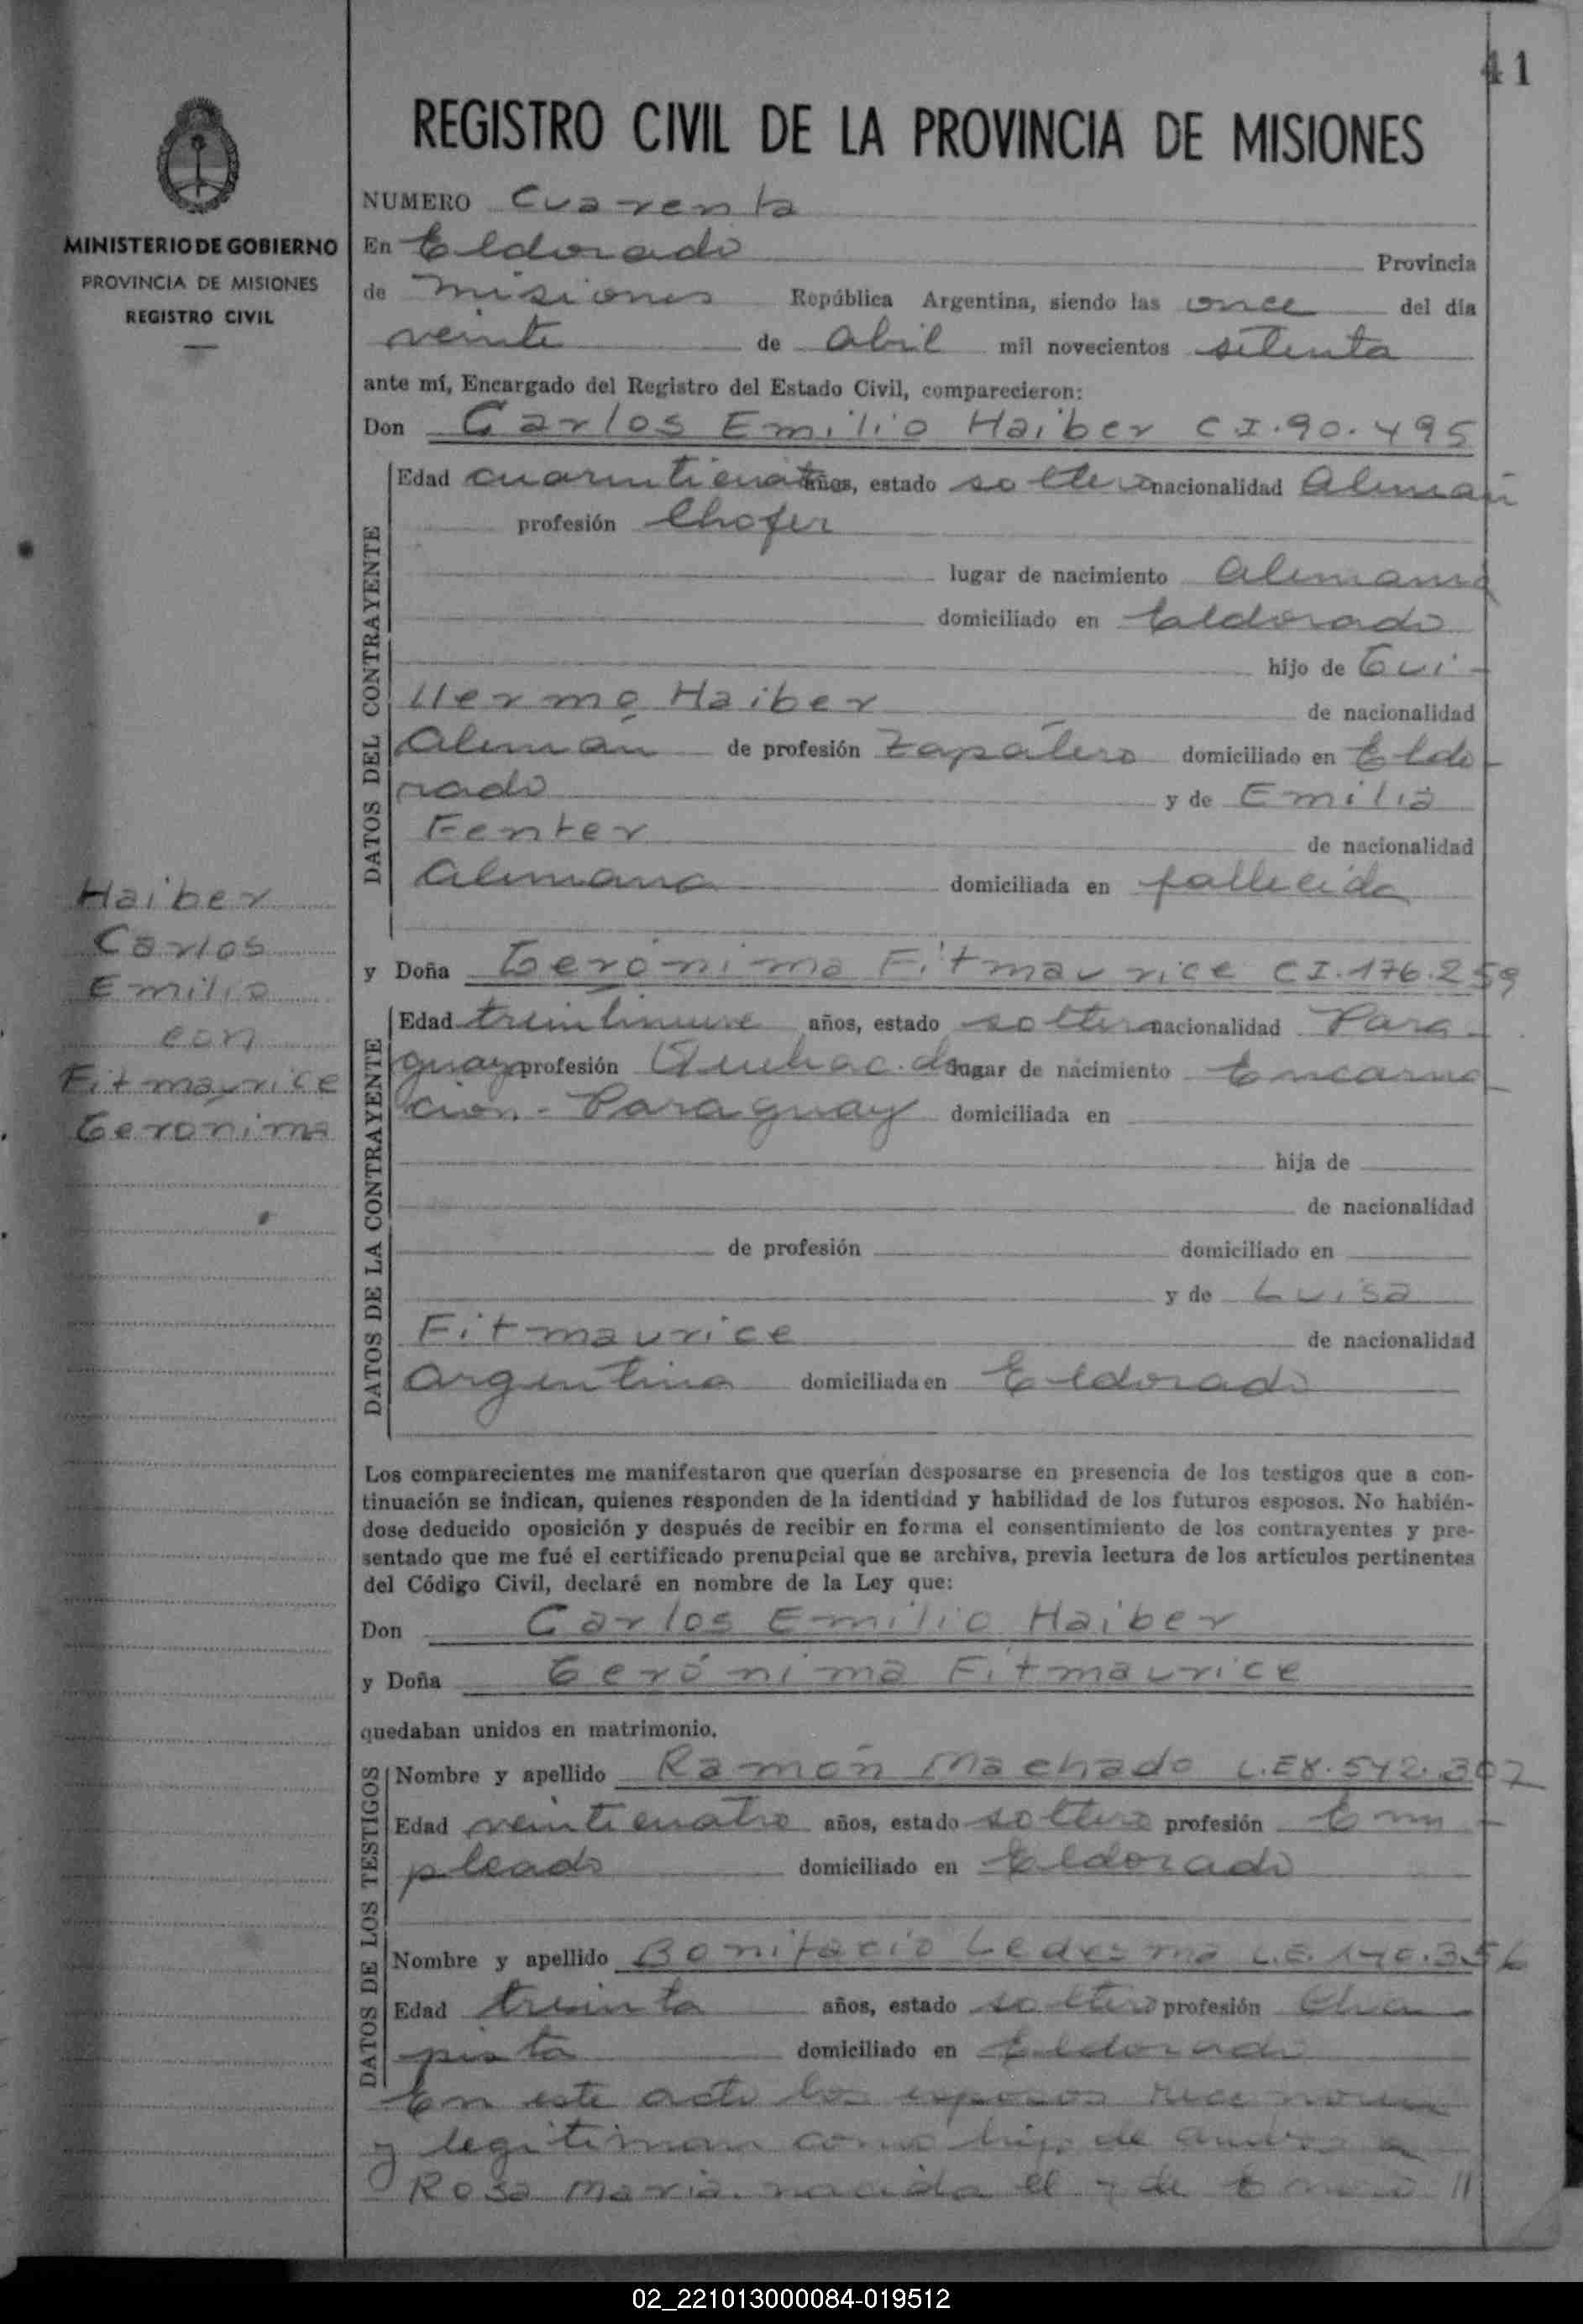 41
REGISTRO CIVIL DE LA PROVINCIA DE MISIONES
MINISTERIO DE GOBIERNO
PROVINCIA DE MISIONES
REGISTRO CIVIL
NUMERO Cuarenta
En Eldorado Provincia
de Misiones República Argentina, siendo las once del día
veinte de Abril mil novecientos setenta
ante mí, Encargado del Registro del Estado Civil, comparecieron:
Don Carlos Emilio Haiber C I. 90. 495
DATOS DEL CONTRAYENTE
Edad años, estado soltero nacionalidad Alemán
profesión Chofer
lugar de nacimiento Alemania
domiciliado en Eldorado
hijo de Gui-
llermo Haiber de nacionalidad
Alemán de profesión Zapatero domiciliado en Eldo-
rado y de Emilia
Fenter de nacionalidad
Alemana domiciliada en fallecida
Haiber
Carlos
Emilio
con
Fitmaurice
Gerónima
y Doña Gerónima Fitmaurice C I. 176. 259
DATOS DE LA CONTRAYENTE
Edad treintinueve años, estado soltera nacionalidad Para-
guaya profesión Quehac. d. lugar de nacimiento Encarna-
ción - Paraguay domiciliada en
hija de
de nacionalidad
de profesión domiciliado en
y de Luisa
Fitmaurice de nacionalidad
Argentina domiciliada en Eldorado
Los comparecientes me manifestaron que querían desposarse en presencia de los testigos que a con-
tinuación se indican, quienes responden de la identidad y habilidad de los futuros esposos. No habién-
dose deducido oposición y después de recibir en forma el consentimiento de los contrayentes y pre-
sentado que me fué el certificado prenupcial que se archiva, previa lectura de los artículos pertinentes
del Código Civil, declaré en nombre de la Ley que:
Don Carlos Emilio Haiber
y Doña Gerónima Fitmaurice
quedaban unidos en matrimonio.
DATOS DE LOS TESTIGOS
Nombre y apellido Ramón Machado L.E 8. 542. 307
Edad veinticuatro años, estado soltero profesión Em-
pleado domiciliado en Eldorado
Nombre y apellido Bonifacio Ledesma L.E. 140. 356
Edad treinta años, estado soltero profesión Cha-
pista domiciliado en Eldorado
En este acto los esposos reconocen
y legitiman como hija de ambos a
Rosa Maria nacida el 7 de Enero //
02_221013000084-019512